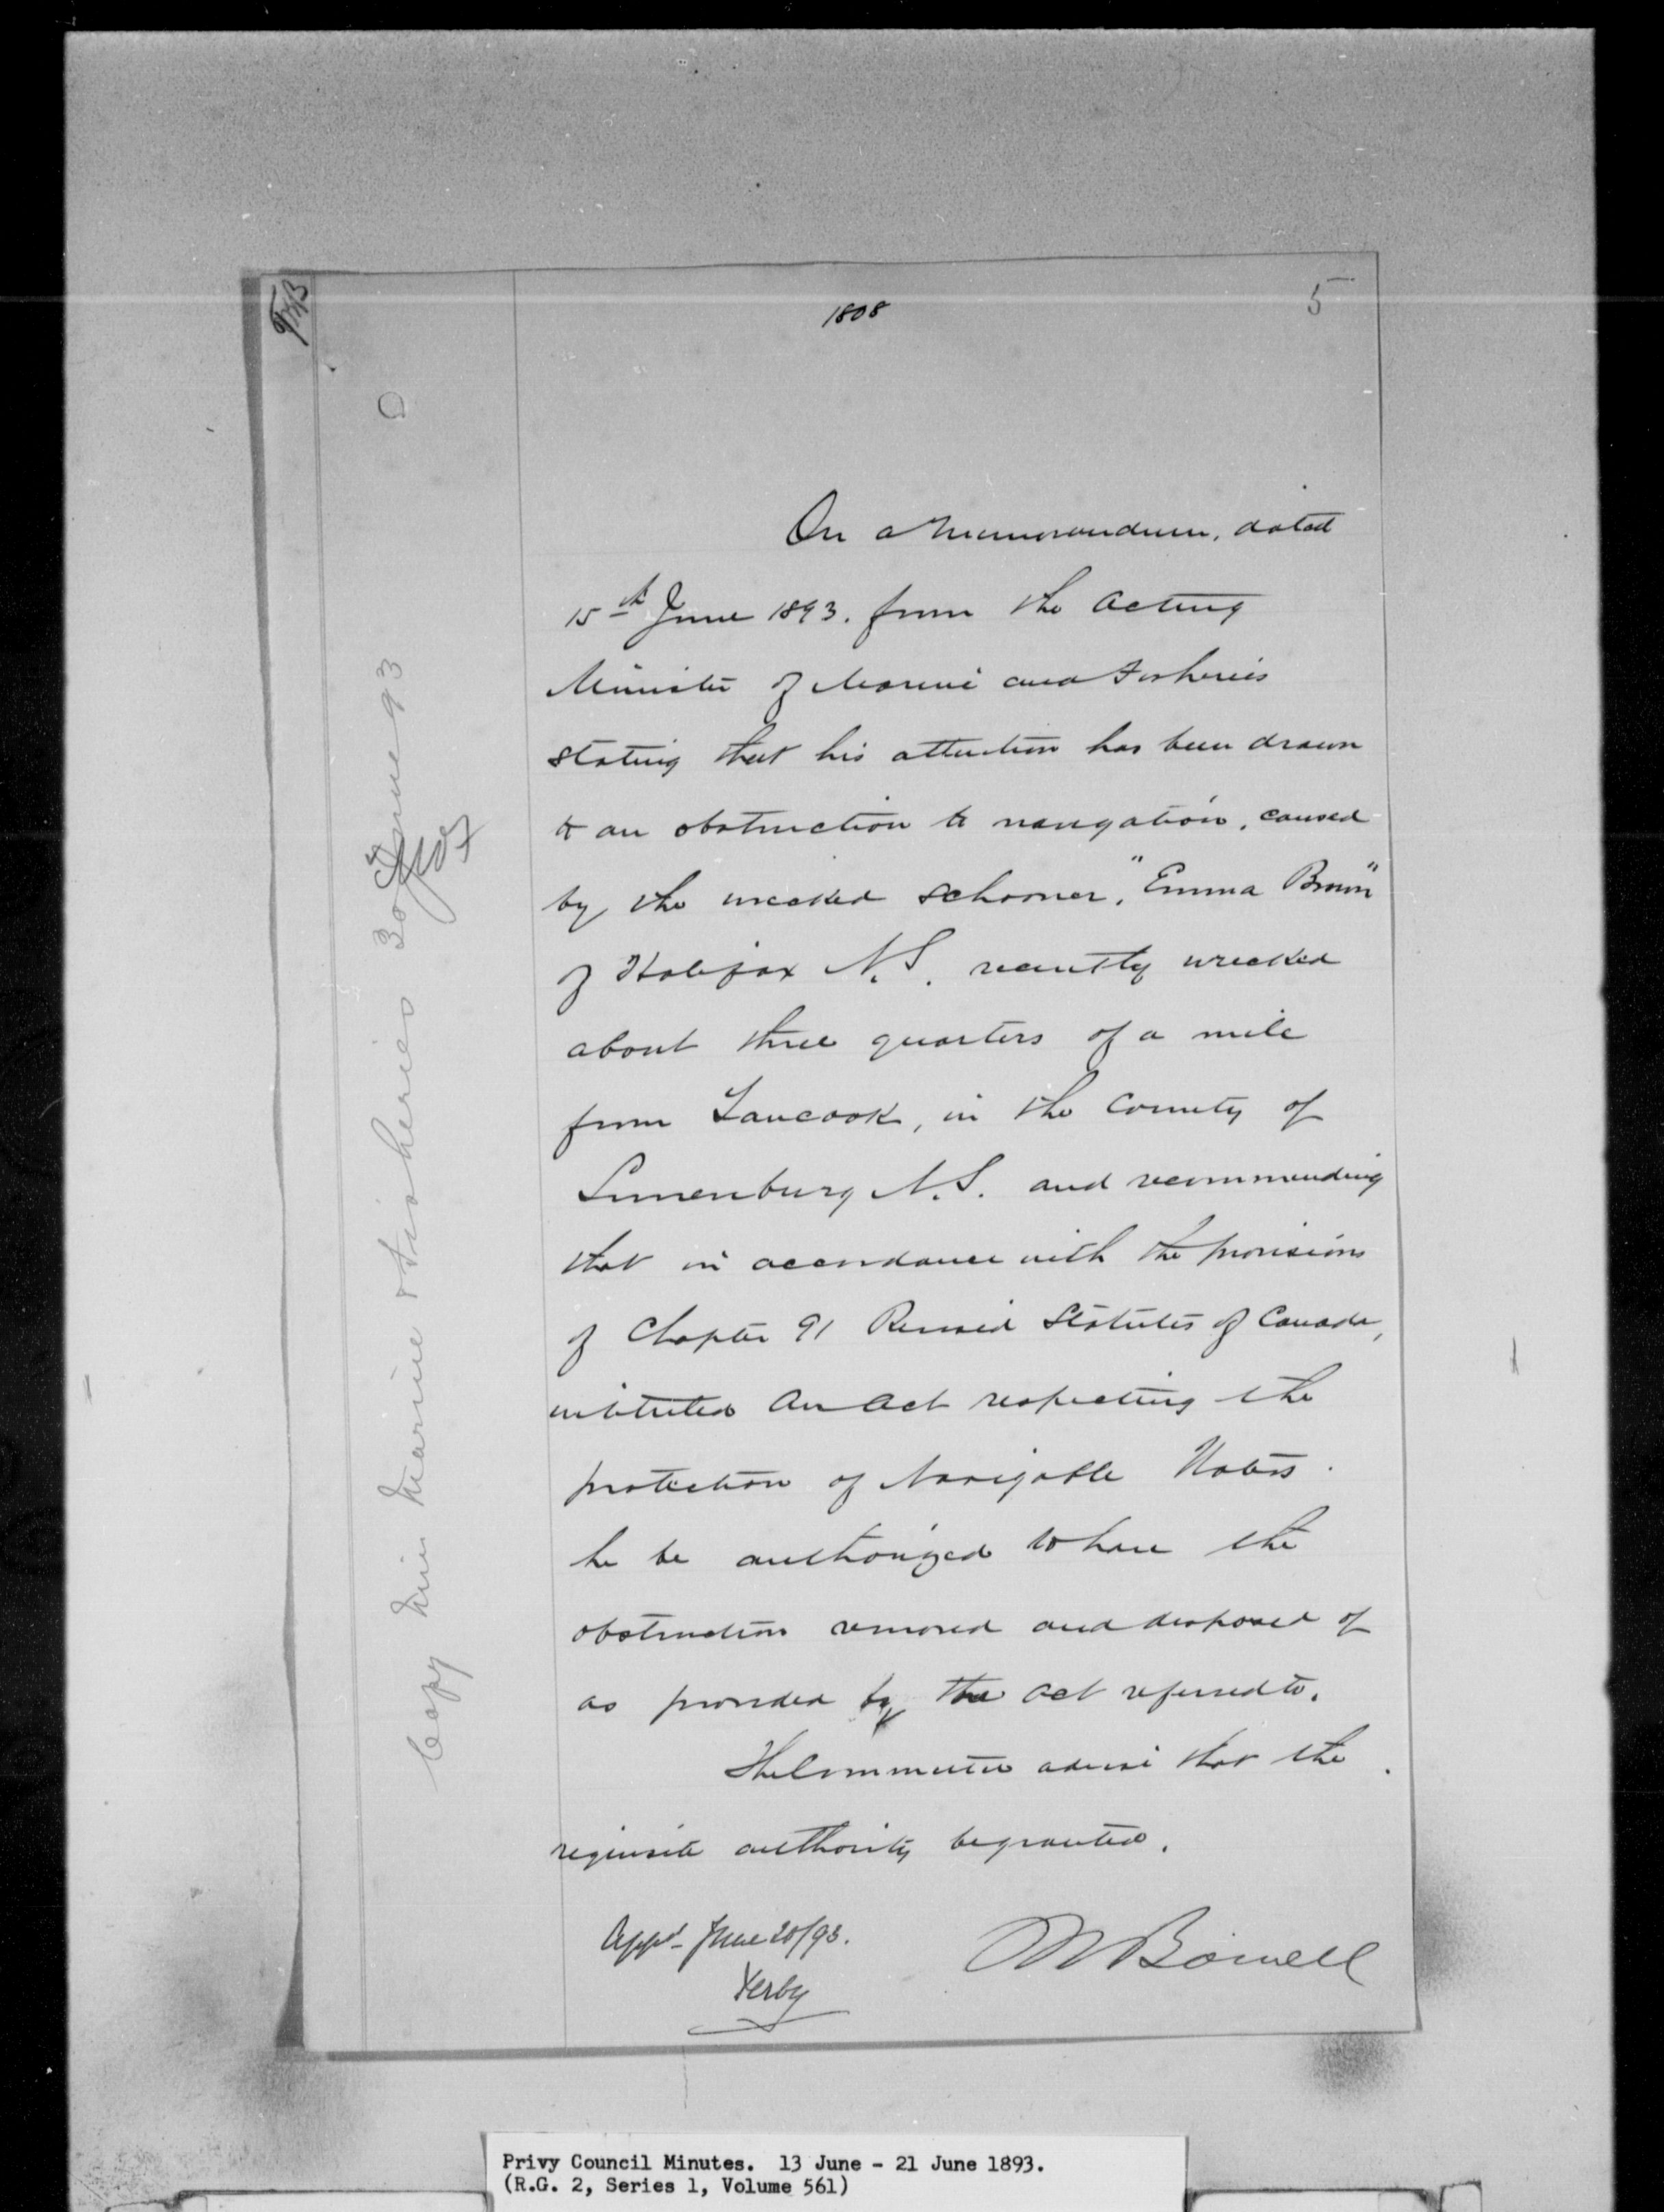 1808
5
On a Memorandum, dated
15th June 1893. from the Acting
Minister of Marine and Fisheries
stating that his attention has been drawn
to an obstruction to navigation, caused
by the wrecked schooner, "Emma Brown"
of Halifax N.S. recently wrecked
about three quarters of a mile
from Tancook, in the County of
Lunenburg N.S. and recommending
that in accordance with the provisions
of Chapter 91 Revised Statutes of Canada,
intituled An Act respecting the
protection of Navigable Waters.
he be authorized to have the
obstruction removed and disposed of
as provided by the Act referred to.
The Committee advise that the
requisite authority be granted.
Appd June 20/93.
Derby
M Bowell
Copy Min Marine & Fisheries 30 June 93
Privy Council Minutes. 13 June - 21 June 1893.
(R.G. 2, Series 1, Volume 561)